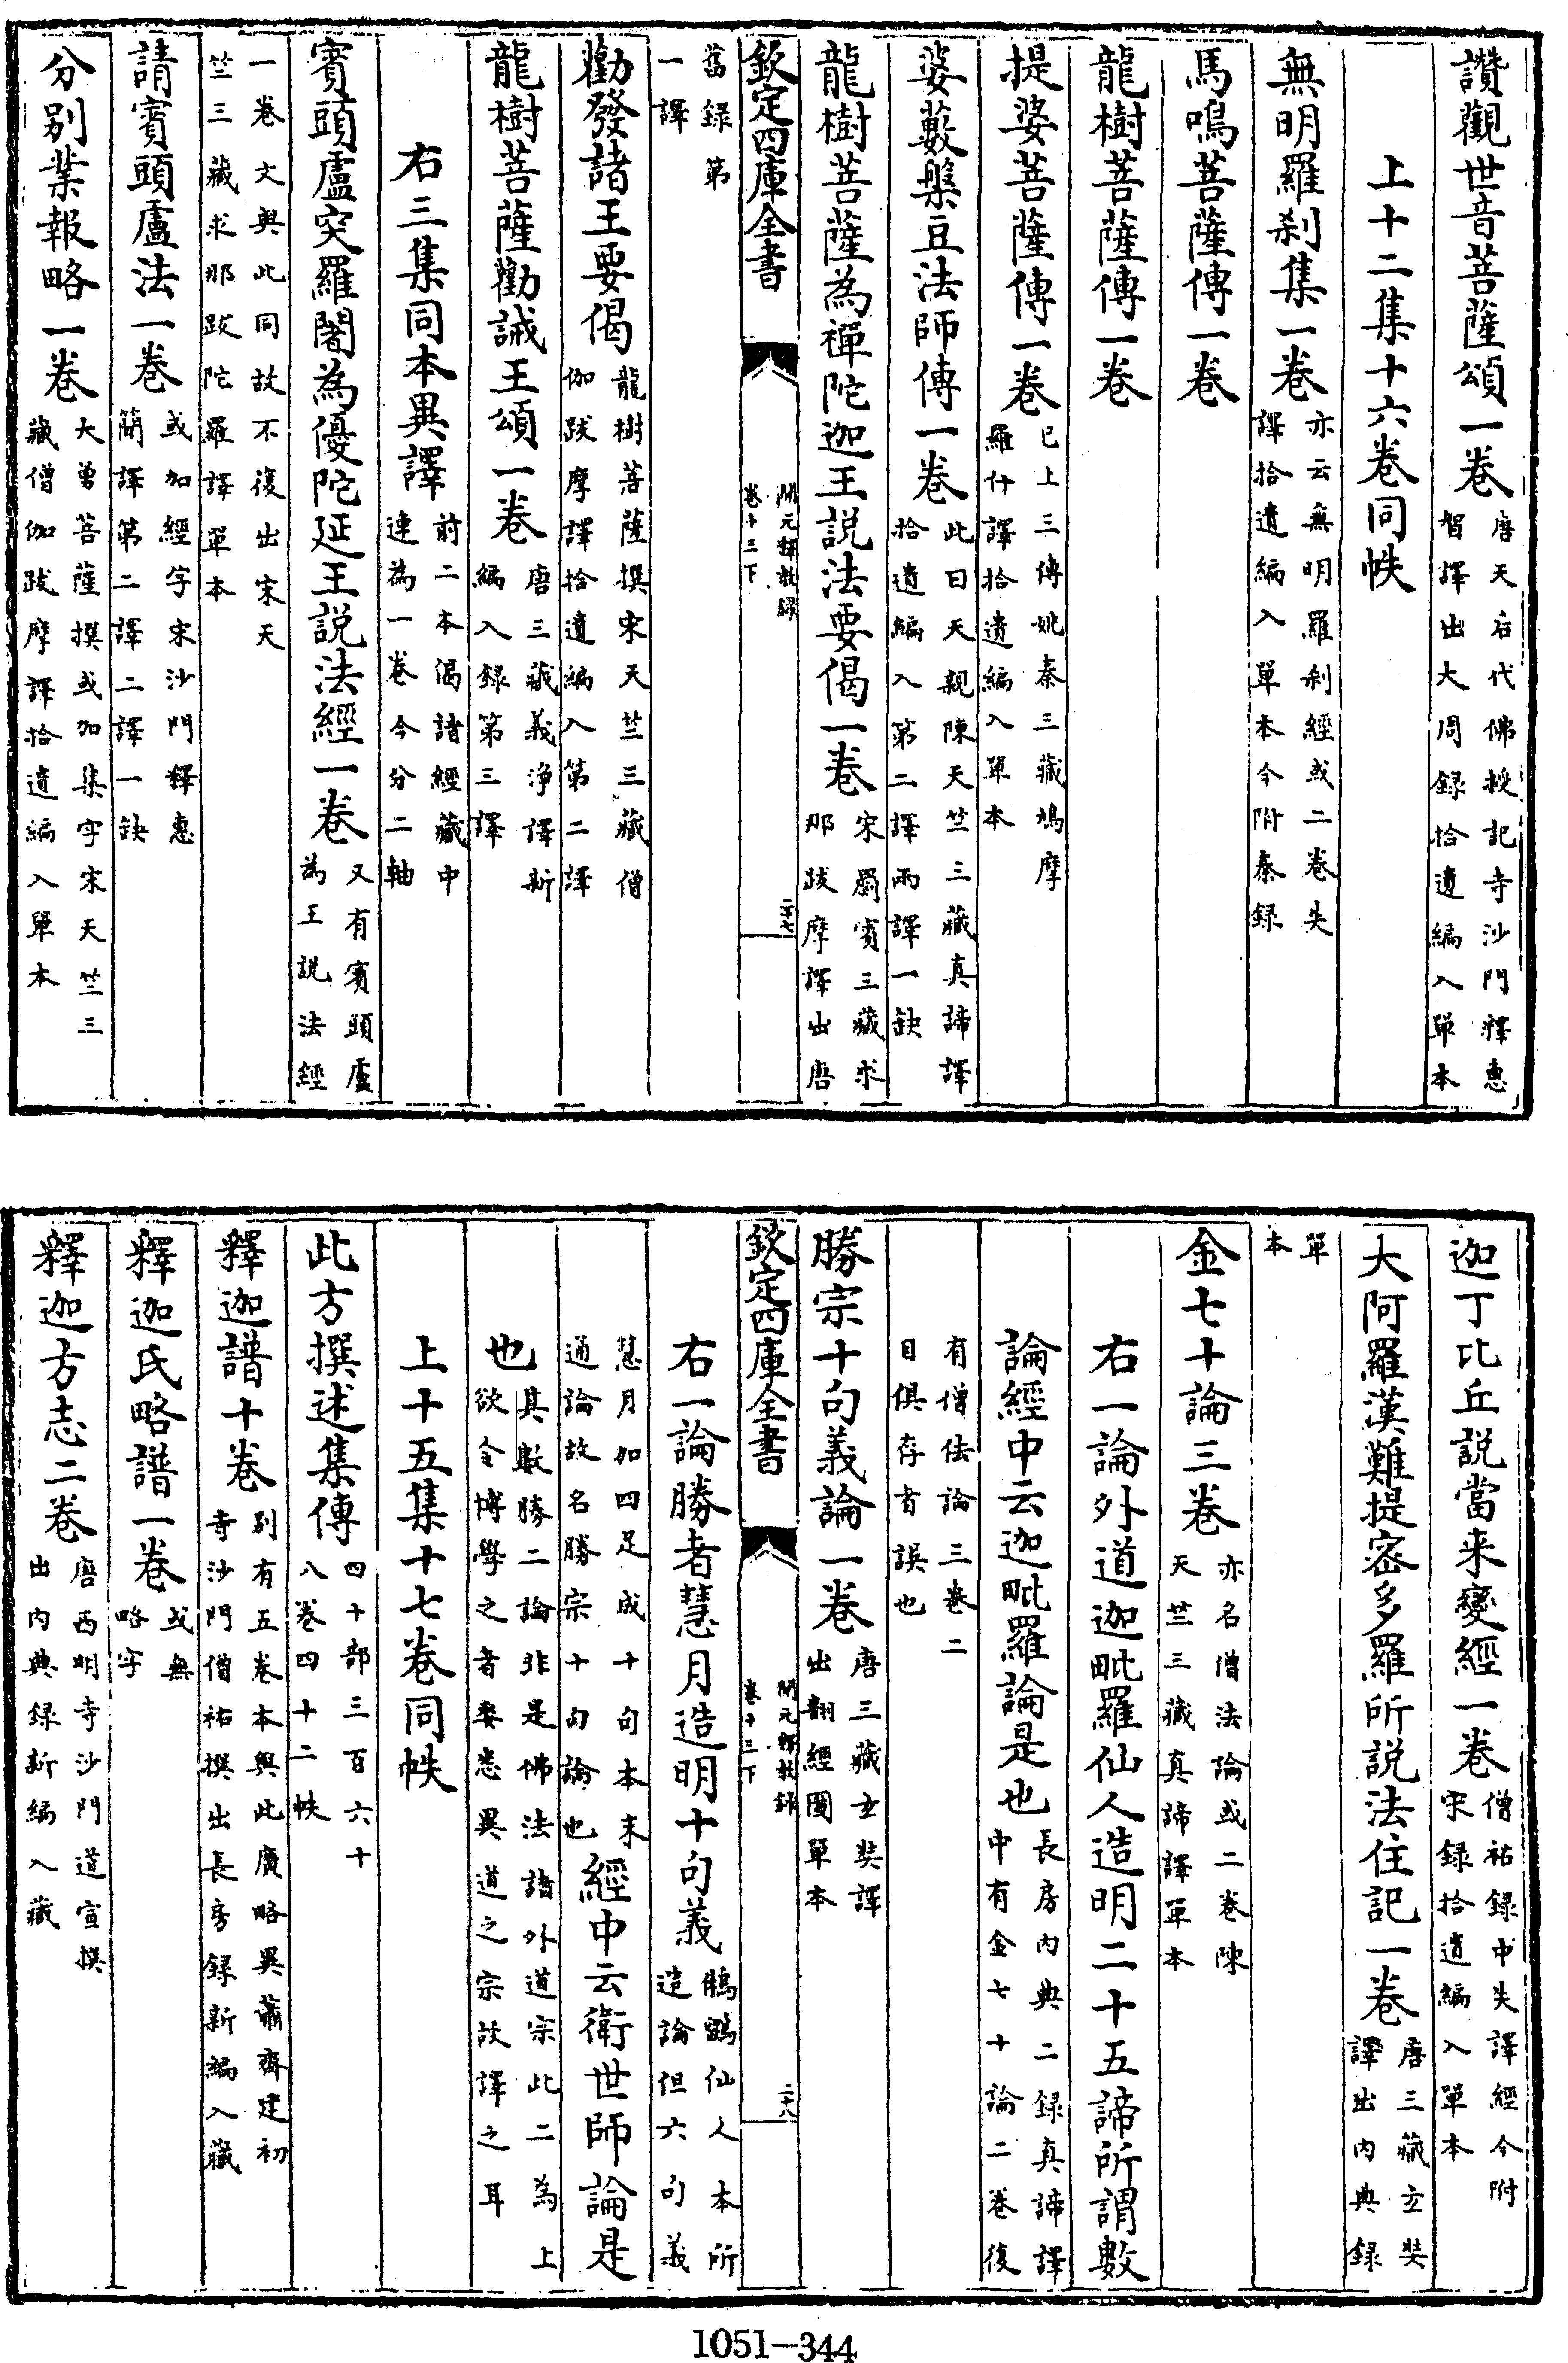 讚觀世音菩薩頌一卷唐天后代佛授記寺沙門釋惠智譯出大周録拾遺編入單本
上十二集十六卷同帙
無明羅刹集一卷亦云無明羅刹經或二卷失譯拾遺編入單本今附秦録
馬鳴菩薩傳一卷
龍樹菩薩傳一卷
提婆菩薩傳一卷已上三傳姚秦三藏鳩摩羅什譯拾遺編入單本
婆藪槃豆法師傳一卷此曰天親陳天竺三藏真諦譯拾遺編入第二譯兩譯一缺
龍樹菩薩為禪陀迦王説法要偈一卷宋罽賓三藏求那跋摩譯出唐
欽定四庫全書
開元釋教録
卷十三下
二十七
舊録第一譯
勸發諸王要偈龍樹菩薩撰宋天竺三藏僧伽跋摩譯拾遺編入第二譯
龍樹菩薩勸誡王頌一卷唐三藏義浄譯新編入録第三譯
右三集同本異譯前二本偈諸經藏中連為一卷今分二軸
賓頭盧突羅闍為優陀延王説法經一卷又有賓頭盧為王説法經
一卷文與此同故不復出宋天竺三藏求那跋陀羅譯單本
請賓頭盧法一卷或加經字宋沙門釋惠簡譯第二譯二譯一缺
分别業報略一卷大勇菩薩撰或加集字宋天竺三藏僧伽跋摩譯拾遺編入單本
迦丁比丘説當来變經一卷僧祐録中失譯經今附宋録拾遺編入單本
大阿羅漢難提密多羅所説法住記一卷唐三藏玄奘譯出内典録
單本
金七十論三卷亦名僧法論或二卷陳天竺三藏真諦譯單本
右一論外道迦毗羅仙人造明二十五諦所謂數
論經中云迦毗羅論是也長房内典二録真諦譯中有金七十論二卷復
有僧佉論三卷二目俱存者誤也
勝宗十句義論一卷唐三藏玄奘譯出翻經圖單本
欽定四庫全書
開元釋教録
卷十三下
二十八
右一論勝者慧月造明十句義鵂鶹仙人本所造論但六句義
慧月加四足成十句本末通論故名勝宗十句論也經中云衛世師論是
也其數勝二論非是佛法諸外道宗此二為上欲令博學之者委悉異道之宗故譯之耳
上十五集十七卷同帙
此方撰述集傳四十部三百六十八卷四十二帙
釋迦譜十卷别有五卷本與此廣略異蕭齊建初寺沙門僧祐撰出長房録新編入藏
釋迦氏略譜一卷或無略字
釋迦方志二卷唐西明寺沙門道宣撰出内典録新編入藏
1051-344